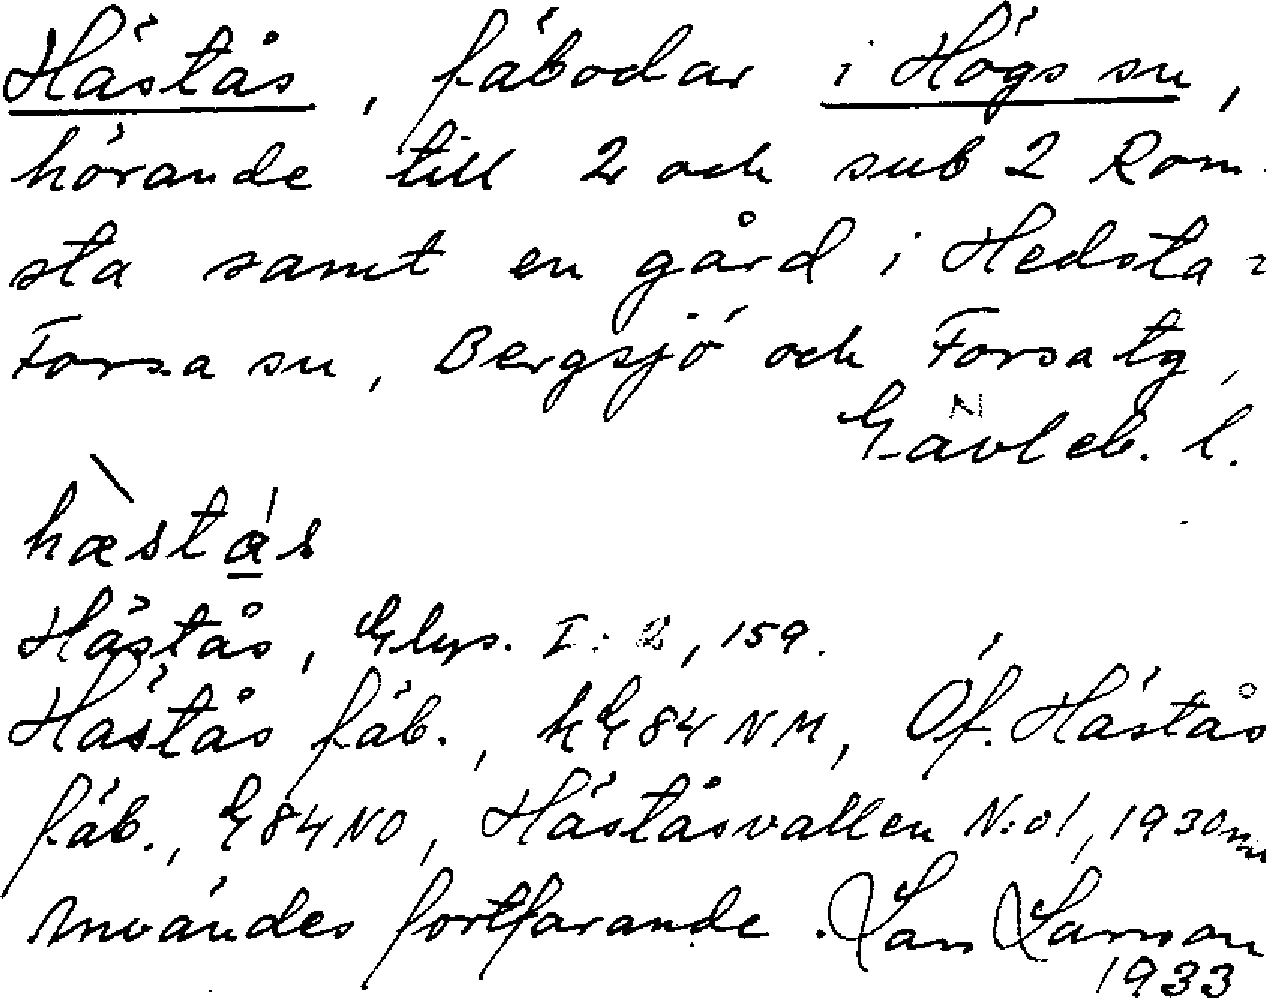 Hästås, fäbodar i Högs sn,
hörande till 2 och sub 2 Rom-
sta samt en gård i Hedsta =
Forsa sn, Bergsjö och Forsa tg,
Gävleb. l.
hæstås
Hästås, Glys. I: 2, 159.
Hästås fäb., hG 84 NM, Öf. Hästås
fäb., G 84 NO, Häståsvallen N:o 1, 1930
Användes fortfarande. Lars Larsson
1933